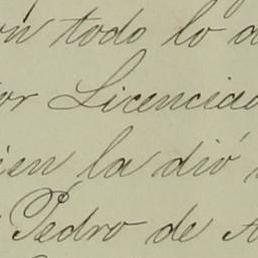 on todo lo d
or Licenciad
ien la dió
Pedro de A